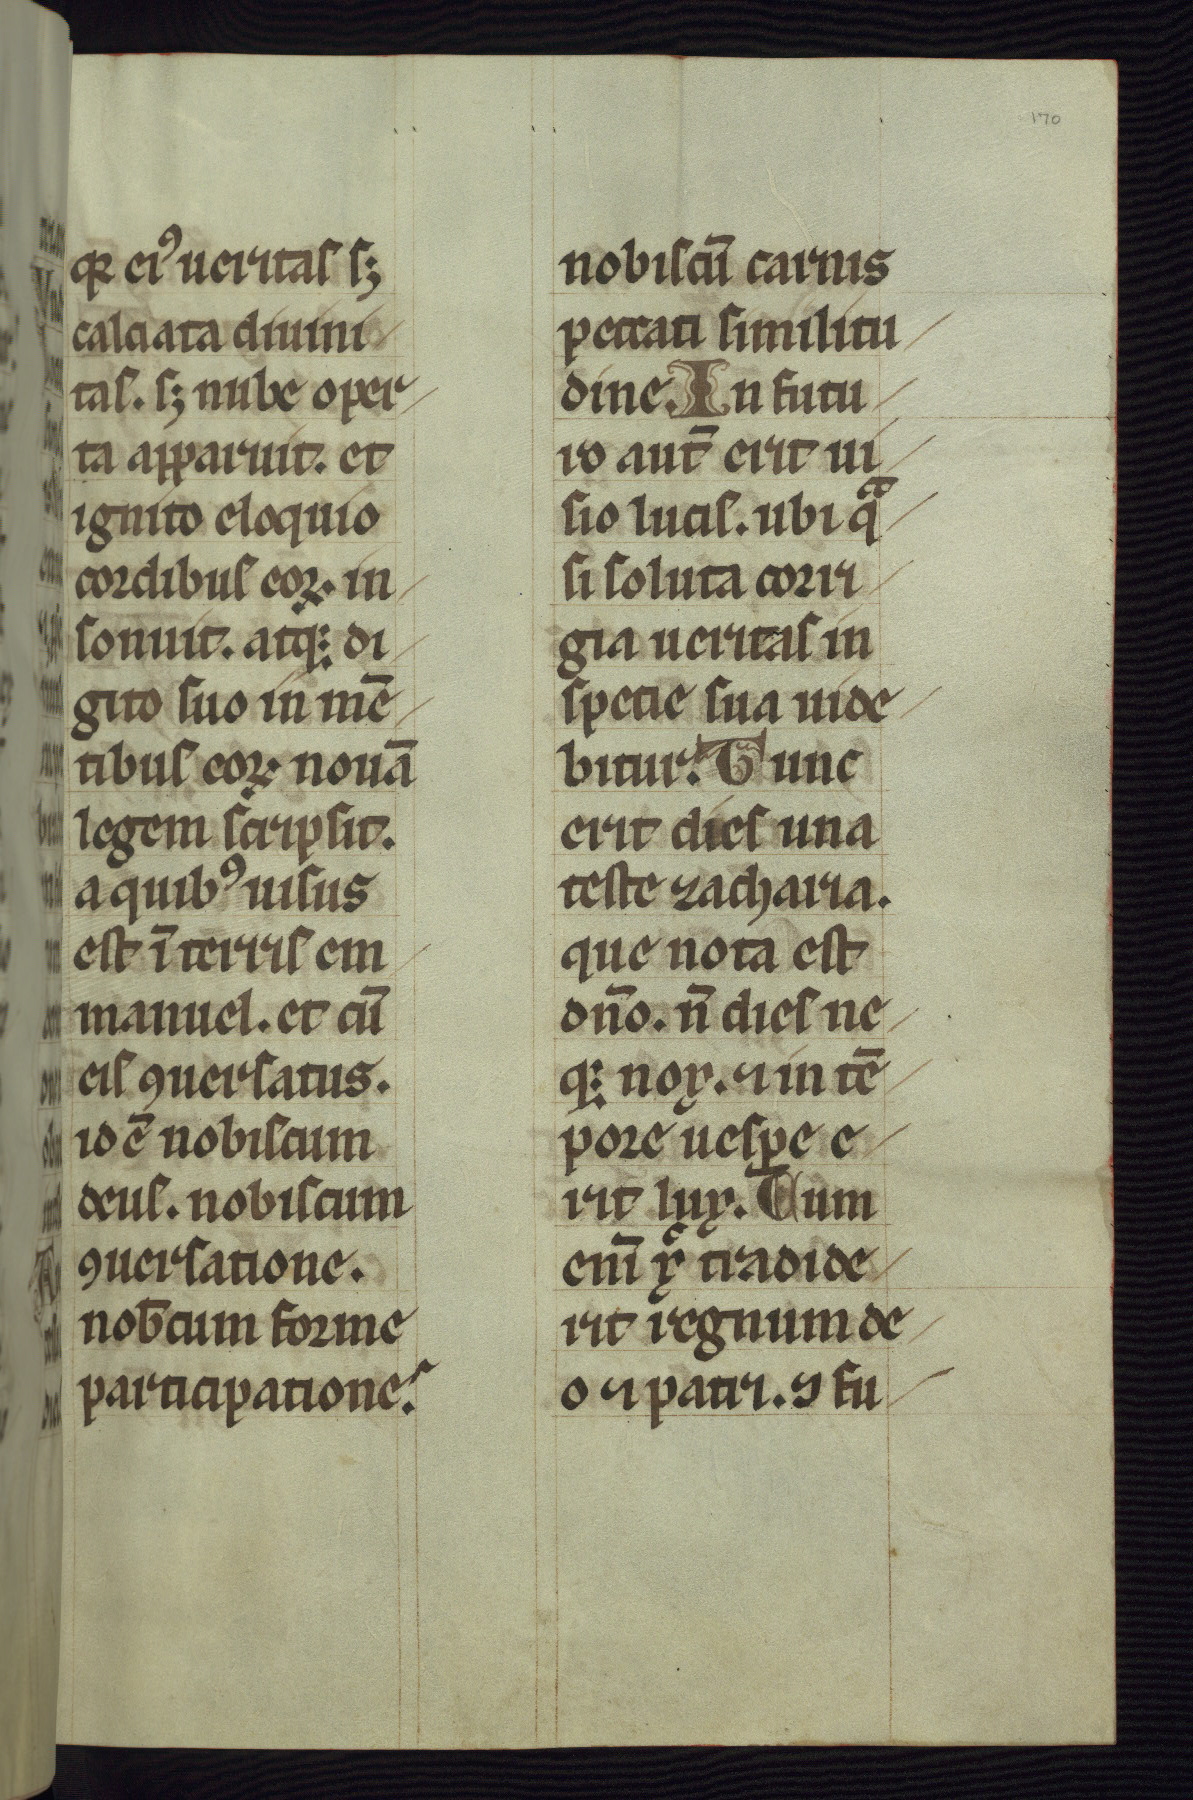 170
qꝛ ei᾽ ueritas sꝫ
calciata diuini
tas. sꝫ nube oper
ta apparuit. et
ignito eloquio
cordibus eoꝝ. in
sonuit. atqꝫ di
gito suo in mē
tibus eoꝝ. nouā
legem scripsit.
a quibꝰ uisus
est ī terris em
manuel. et cū
eis ꝯuersatus.
id ē nobiscum
deus. nobiscum
ꝯuersatione.
nob̄cum forme
participatione.
nobiscū carnis
peccati similitu
dine. In futu
ro aut̄ erit ui
sio lucis. ubi qᵃ
si soluta corri
gia ueritas in
specie sua uide
bitur. Tunc
erit dies una
teste zacharia.
que nota est
dn̄o. n̄ dies ne
qꝫ nox. ⁊ in tē
pore uesꝑe e
rit lux. Cum
eni̅ xᶜ tradide
rit regnum de
o ⁊ patri. ꝯfu